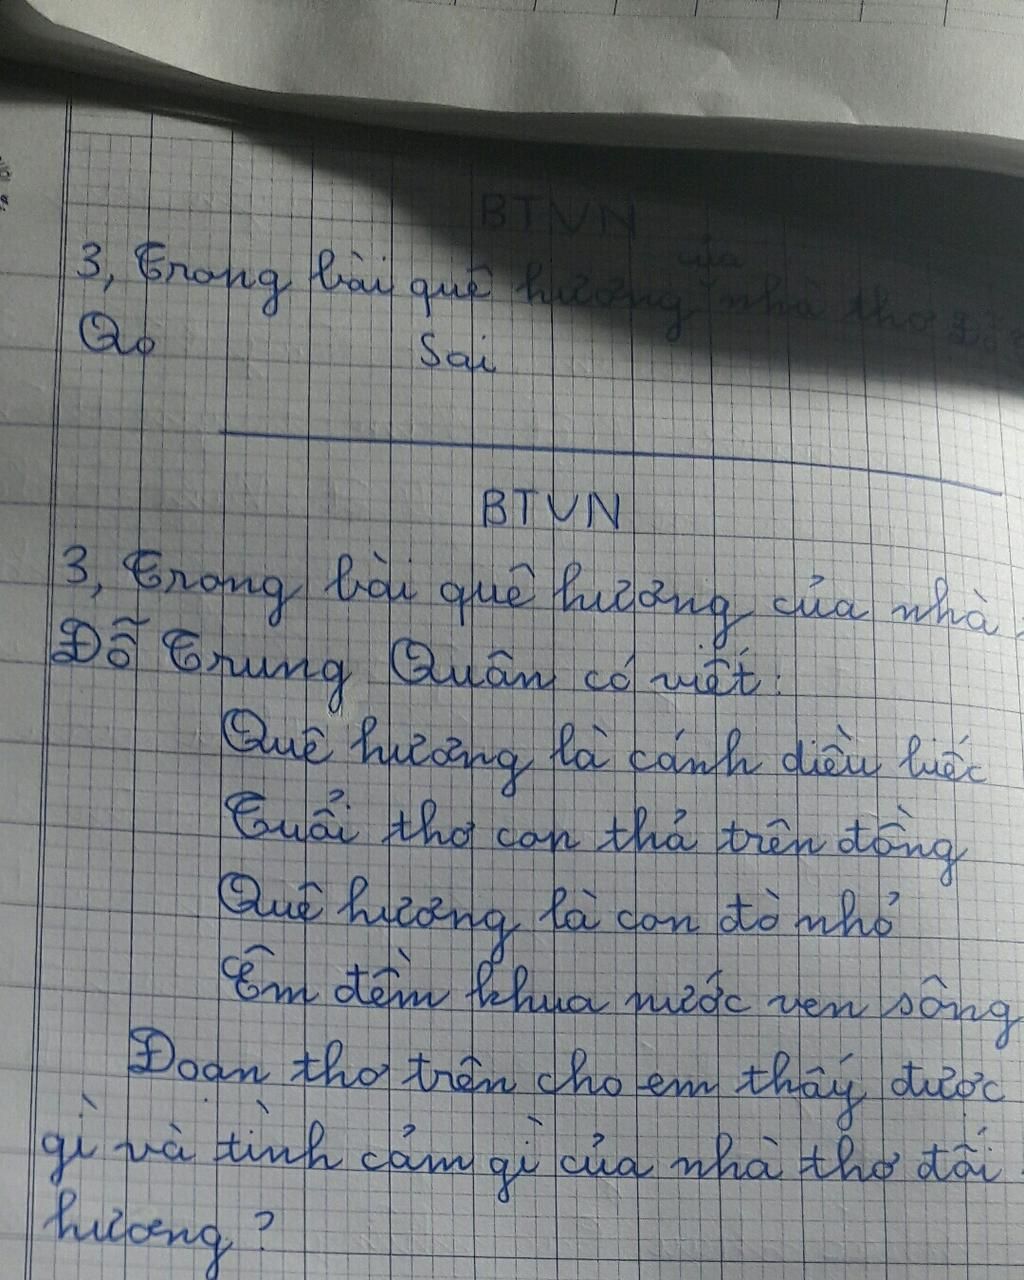 BTVN
3, Trong bài quê hương của nhà thơ Đỗ
Qo Sai
BTVN
3, Trong bài quê hương của nhà
Đỗ Trung Quân có viết:
Quê hương là cánh diều biếc
Tuổi thơ con thả trên đồng
Quê hương là con đò nhỏ
Êm đềm khua nước ven sông
Đoạn thơ trên cho em thấy được
gì và tình cảm gì của nhà thơ đối
hương?